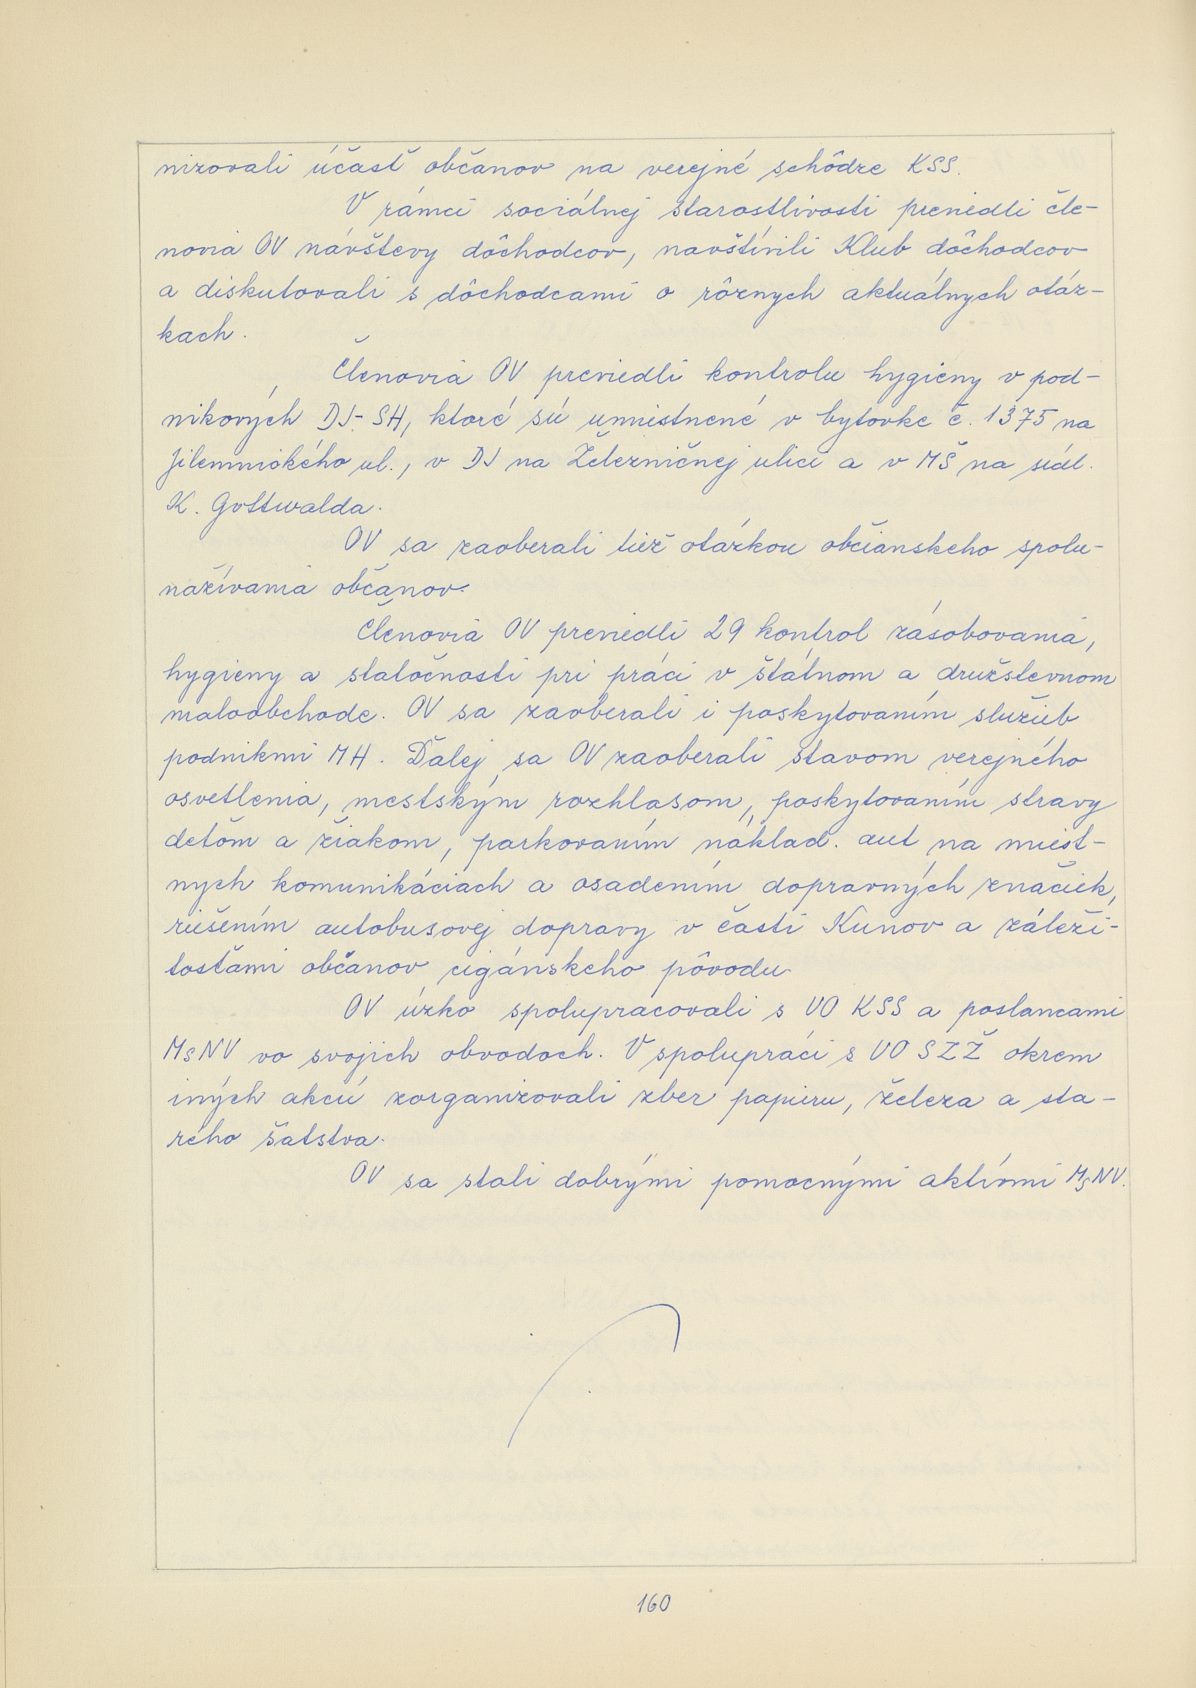 nizovali účasť občanov na verejné schôdze KSS.
V rámci sociálnej starostlivosti previedli čle-
novia OV návštevy dôchodcov, navštívili Klub dôchodcov
a diskutovali s dôchodcami o rôznych aktuálnych otáz-
kach.
Členovia OV previedli kontrolu hygieny v pod-
nikových DJ-SH, ktoré sú umiestnené v bytovke č. 1375 na
Jilemnického ul., v DJ na Železničnej ulici a v MŠ na sídl.
K. Gottwalda.
OV sa zaoberali tiež otázkou občianskeho spolu-
nažívania občanov.
Členovia OV previedli 29 kontrol zásobovania,
hygieny a statočnosti pri práci v štátnom a družstevnom
maloobchode. OV sa zaoberali i poskytovaním služieb
podnikmi MH. Ďalej sa OV zaoberali stavom verejného
osvetlenia, mestským rozhlasom, poskytovaním stravy
deťom a žiakom, parkovaním náklad. aut na miest-
nych komunikáciach a osadením dopravných značiek,
riešením autobusovej dopravy v časti Kunov a záleži-
tosťami občanov cigánskeho pôvodu.
OV úzko spolupracovali s VO KSS a poslancami
MsNV vo svojich obvodoch. V spolupráci s VO SZŽ okrem
iných akcií zorganizovali zber papieru, železa a sta-
rého šatstva.
OV sa stali dobrými pomocnými aktívmi MsNV.
160